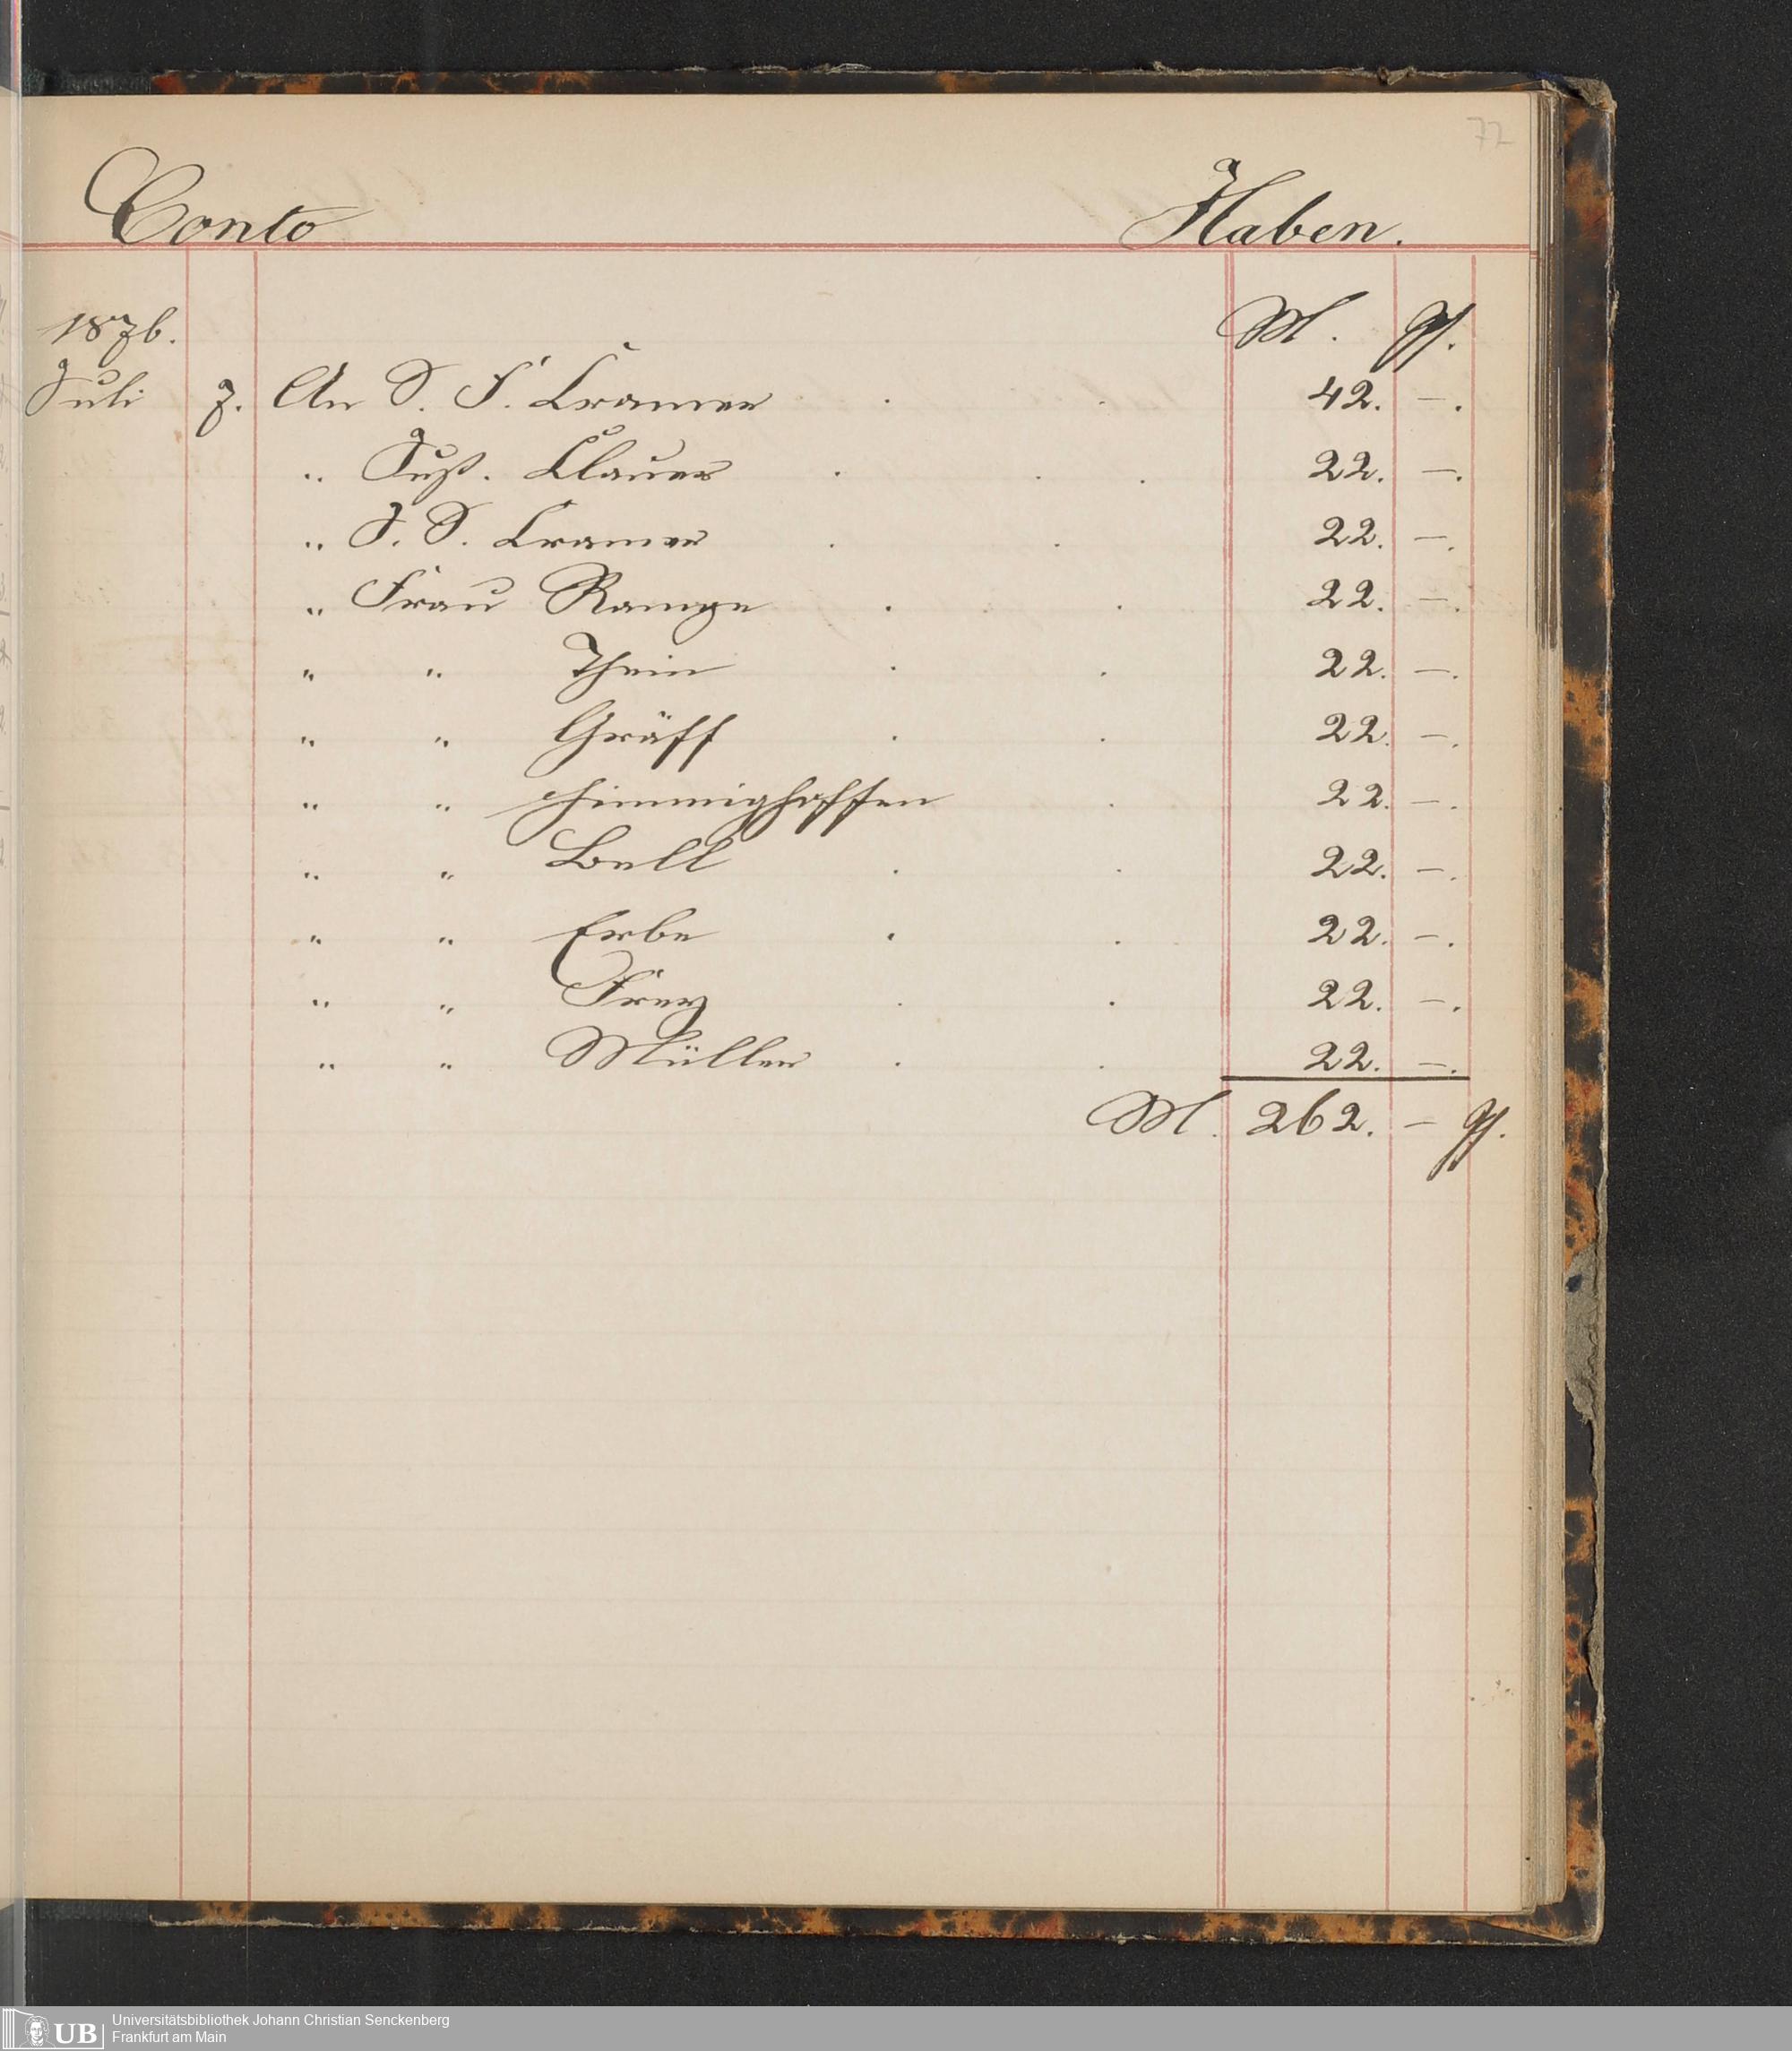 72
Conto Haben.
1876. M. Pf.
Juli 7. An S. F. Cramer . . 42. —.
„ Just. Clauer . . . 22. —.
„ F. S. Cramer . . 22. —.
„ Frau Rampe . . 22. —.
„ „ Thein . . 22. —.
„ „ Gräff . . 22. —.
„ „ Himmighoffen . 22. —.
„ „ Bell . . 22. —.
„ „ Erbe . . 22. —.
„ „ Frey . . 22. —.
„ „ Müller . . 22. —.
M. 262. — Pf.
UB Universitätsbibliothek Johann Christian Senckenberg
Frankfurt am Main